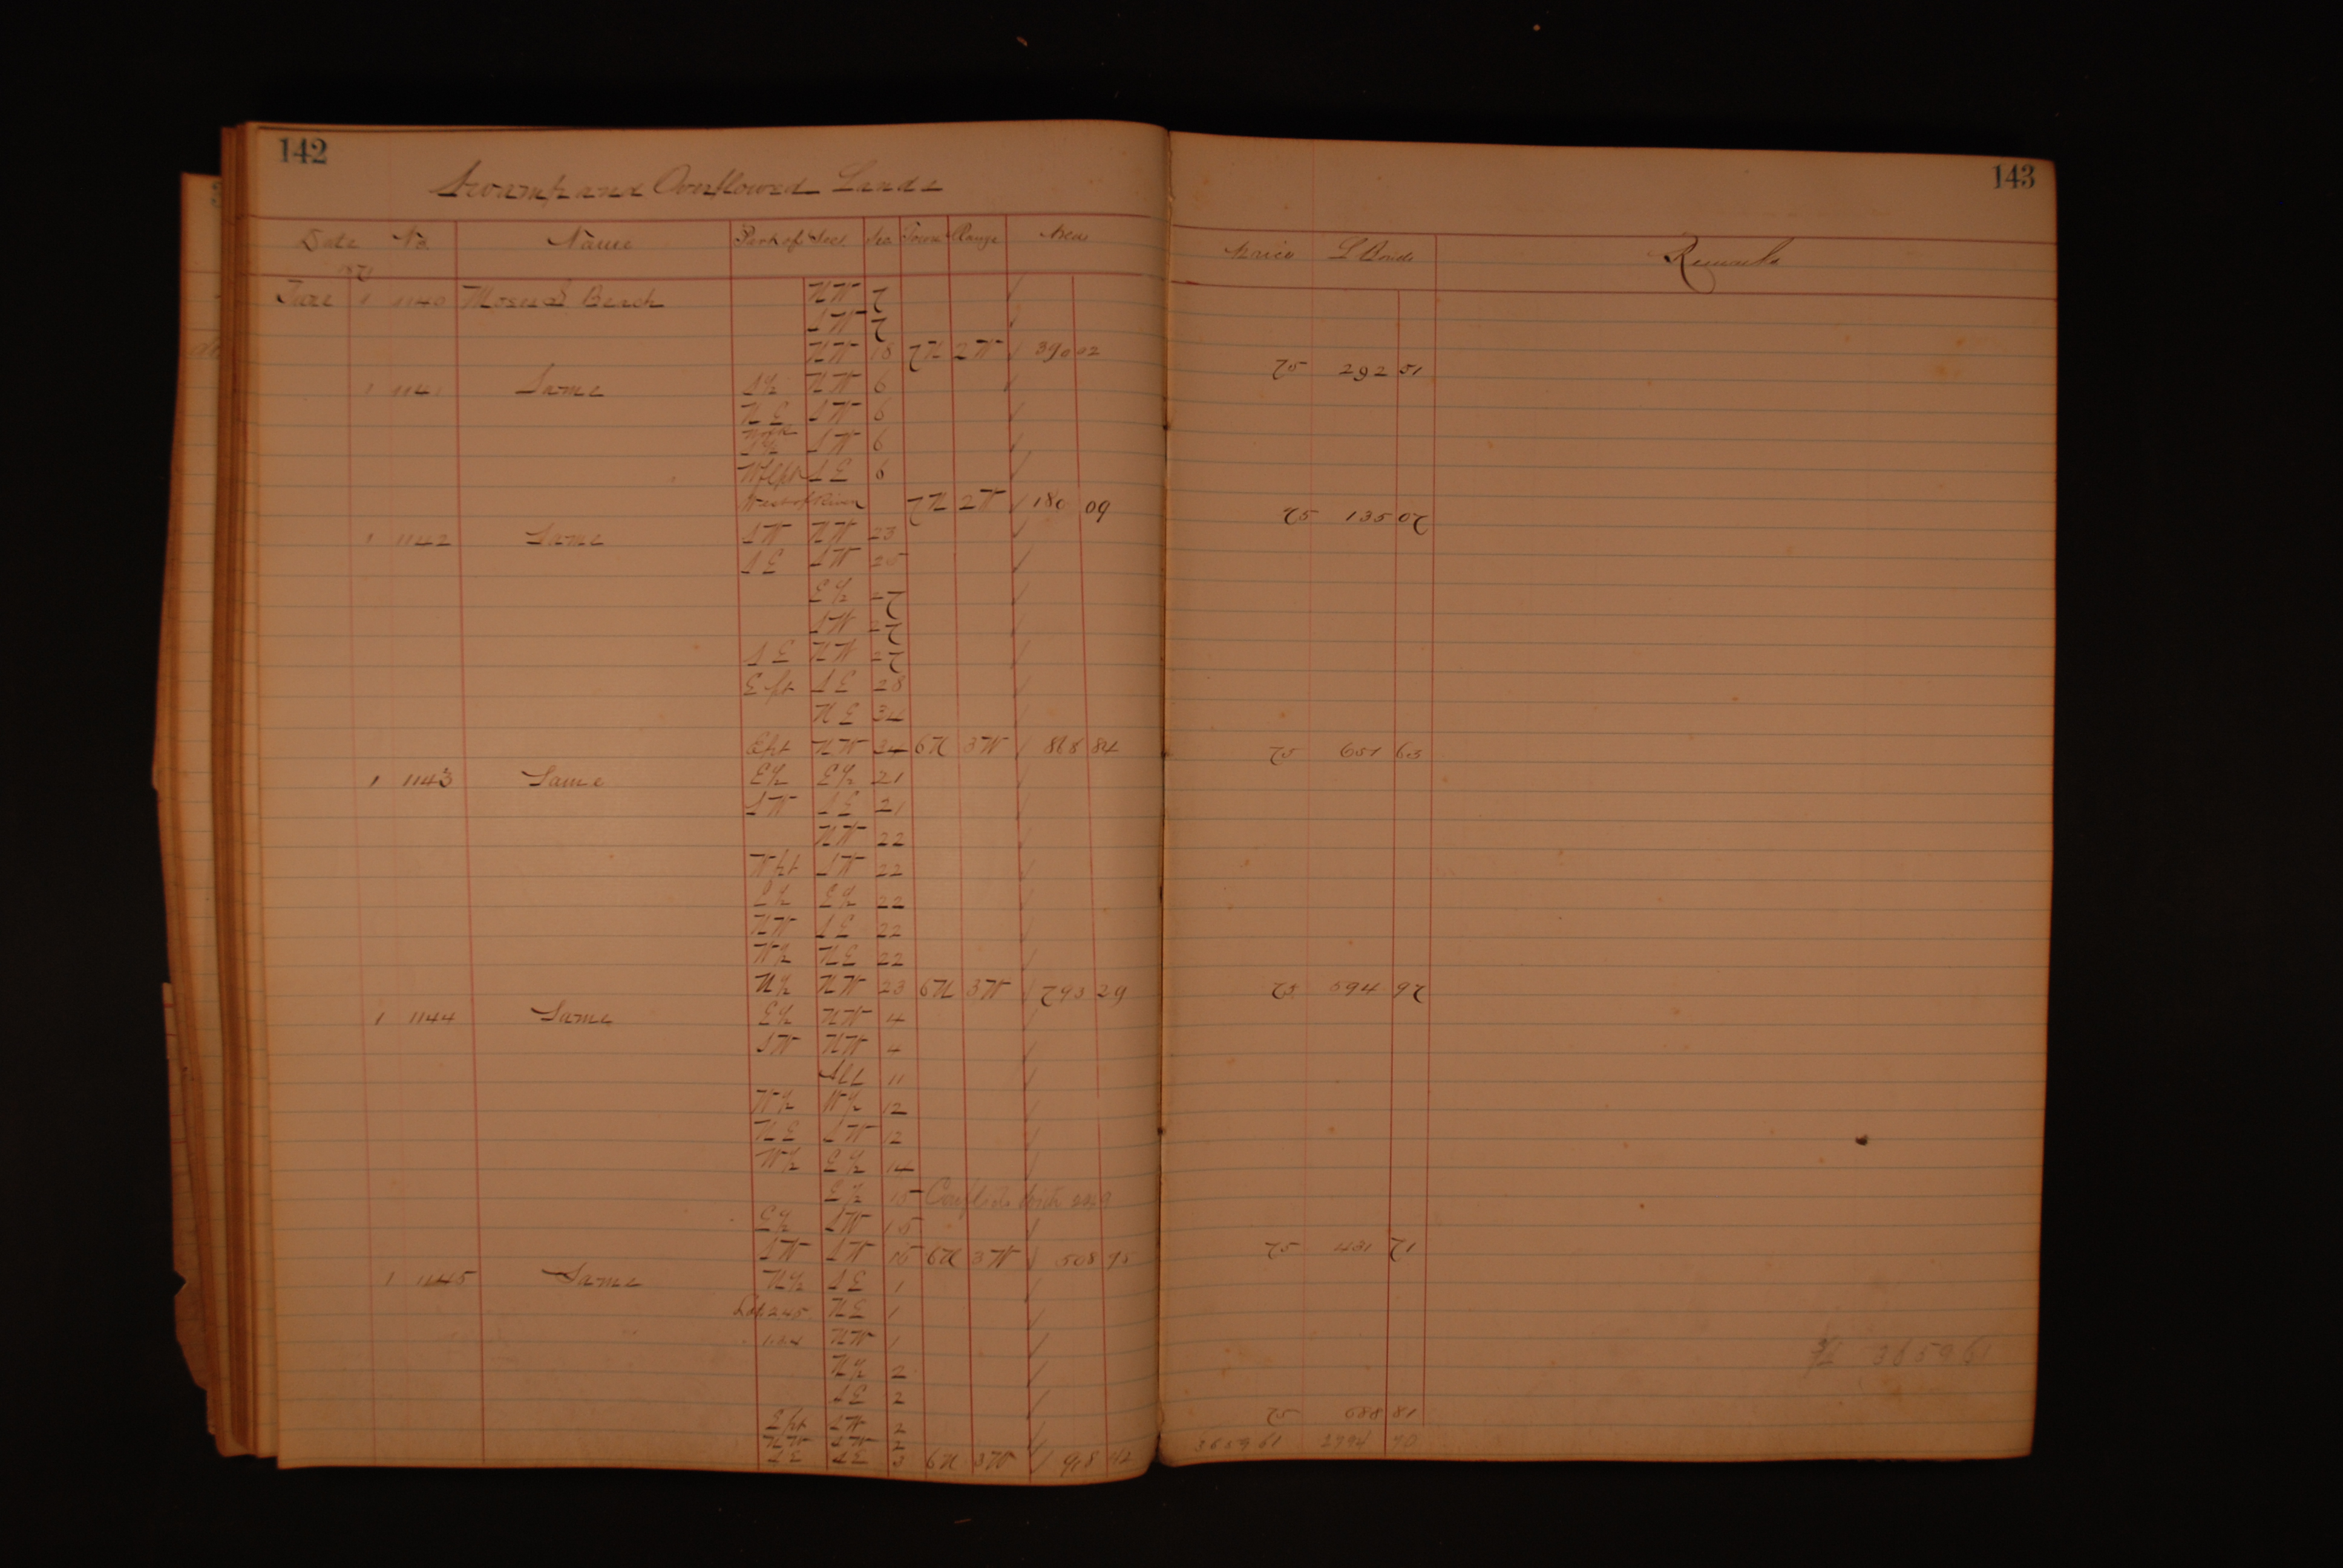 142
Swamp and Overflowed Lands
Date No Name Part of Sec Sec Town Range Area
1871
1 1140 Moses S Beach NW 7
SW 7
NW 18 7N 2W 390 02
1 1141 Same S½ NW 6
NE SW 6
S½ SW 6
SE 6
West of River 7N 2W 180 09
1 1142 Same SW NW 23
SE SW 25
E½ 27
SW 27
SE NW 27
E pt SE 28
NE 34
E pt NW 34 6N 3W 868 84
1 1143 Same E½ E½ 21
SW SE 21
NW 22
W pt SW 22
E½ 22
NW SE 22
W½ NE 22
N½ NW 23 6N 3W 793 29
1 1144 Same E½ NW 4
SW NW 4
All 11
W½ W½ 12
NE SW 12
W½ E½ 14
E½ 15 Conflicts with
E½ SW 15
SW SW 15 6N 3W 508 95
1 1145 Same N½ SE 1
Lots 2 4 5 NE 1
NW 1
N½ 2
SE 2
E pt SW 2
NW SW 2
SE SE 3 6N 3W 918 42
143
Price Remarks
75 292 51
75 135 07
75 651 63
75 594 97
75 431 71
3659 61
75 688 81
3659 61 2794 70